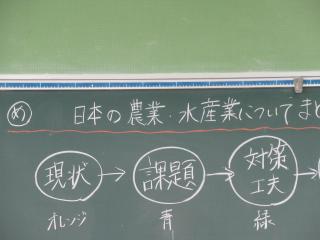 め 日本の農業・水産業についてまと
現状 → 課題 → 対策 →
工夫
オレンジ 青 緑